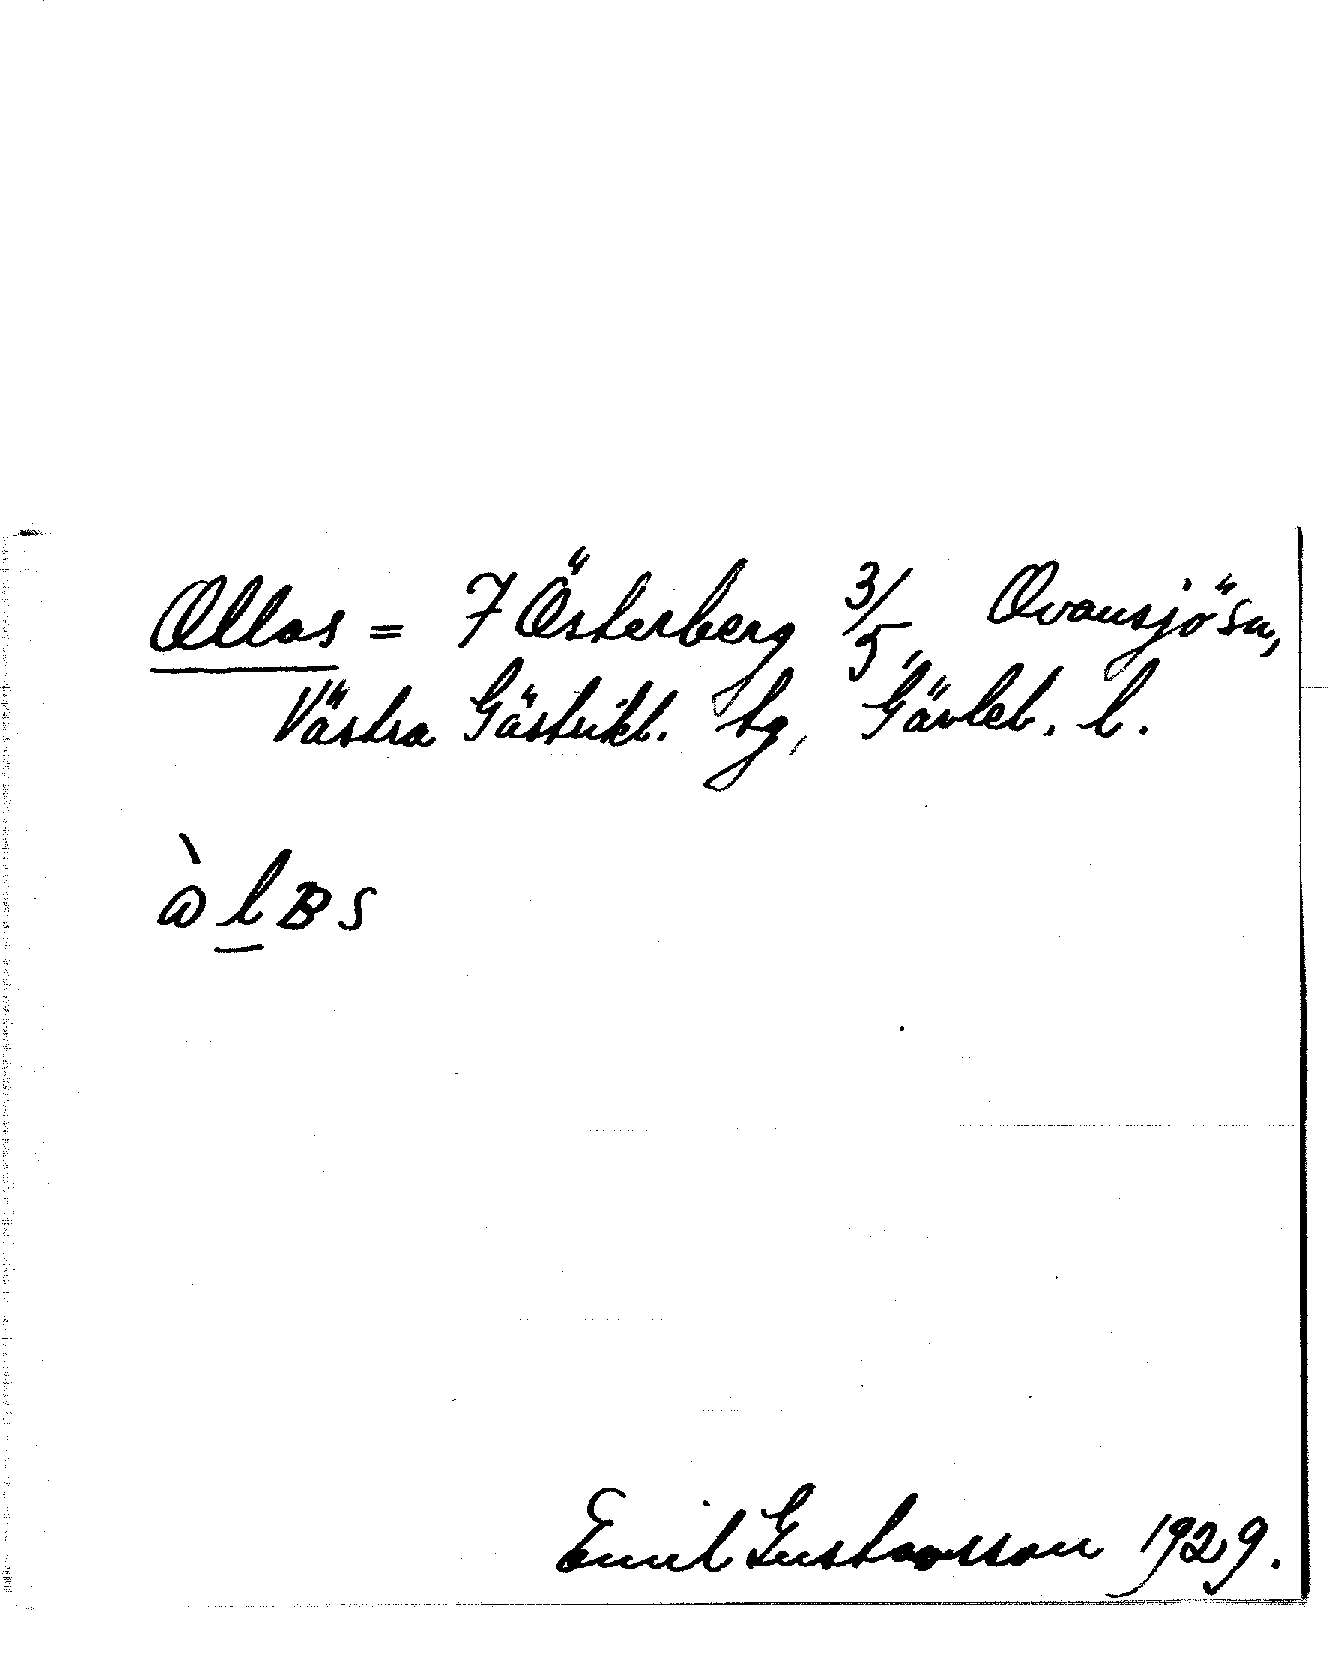 Ollas = 7 Österberg 3/5, Ovansjö sn,
Västra Gästrikl. tg, Gävleb. l.
òlʙs
Emil Gustavsson 1929.